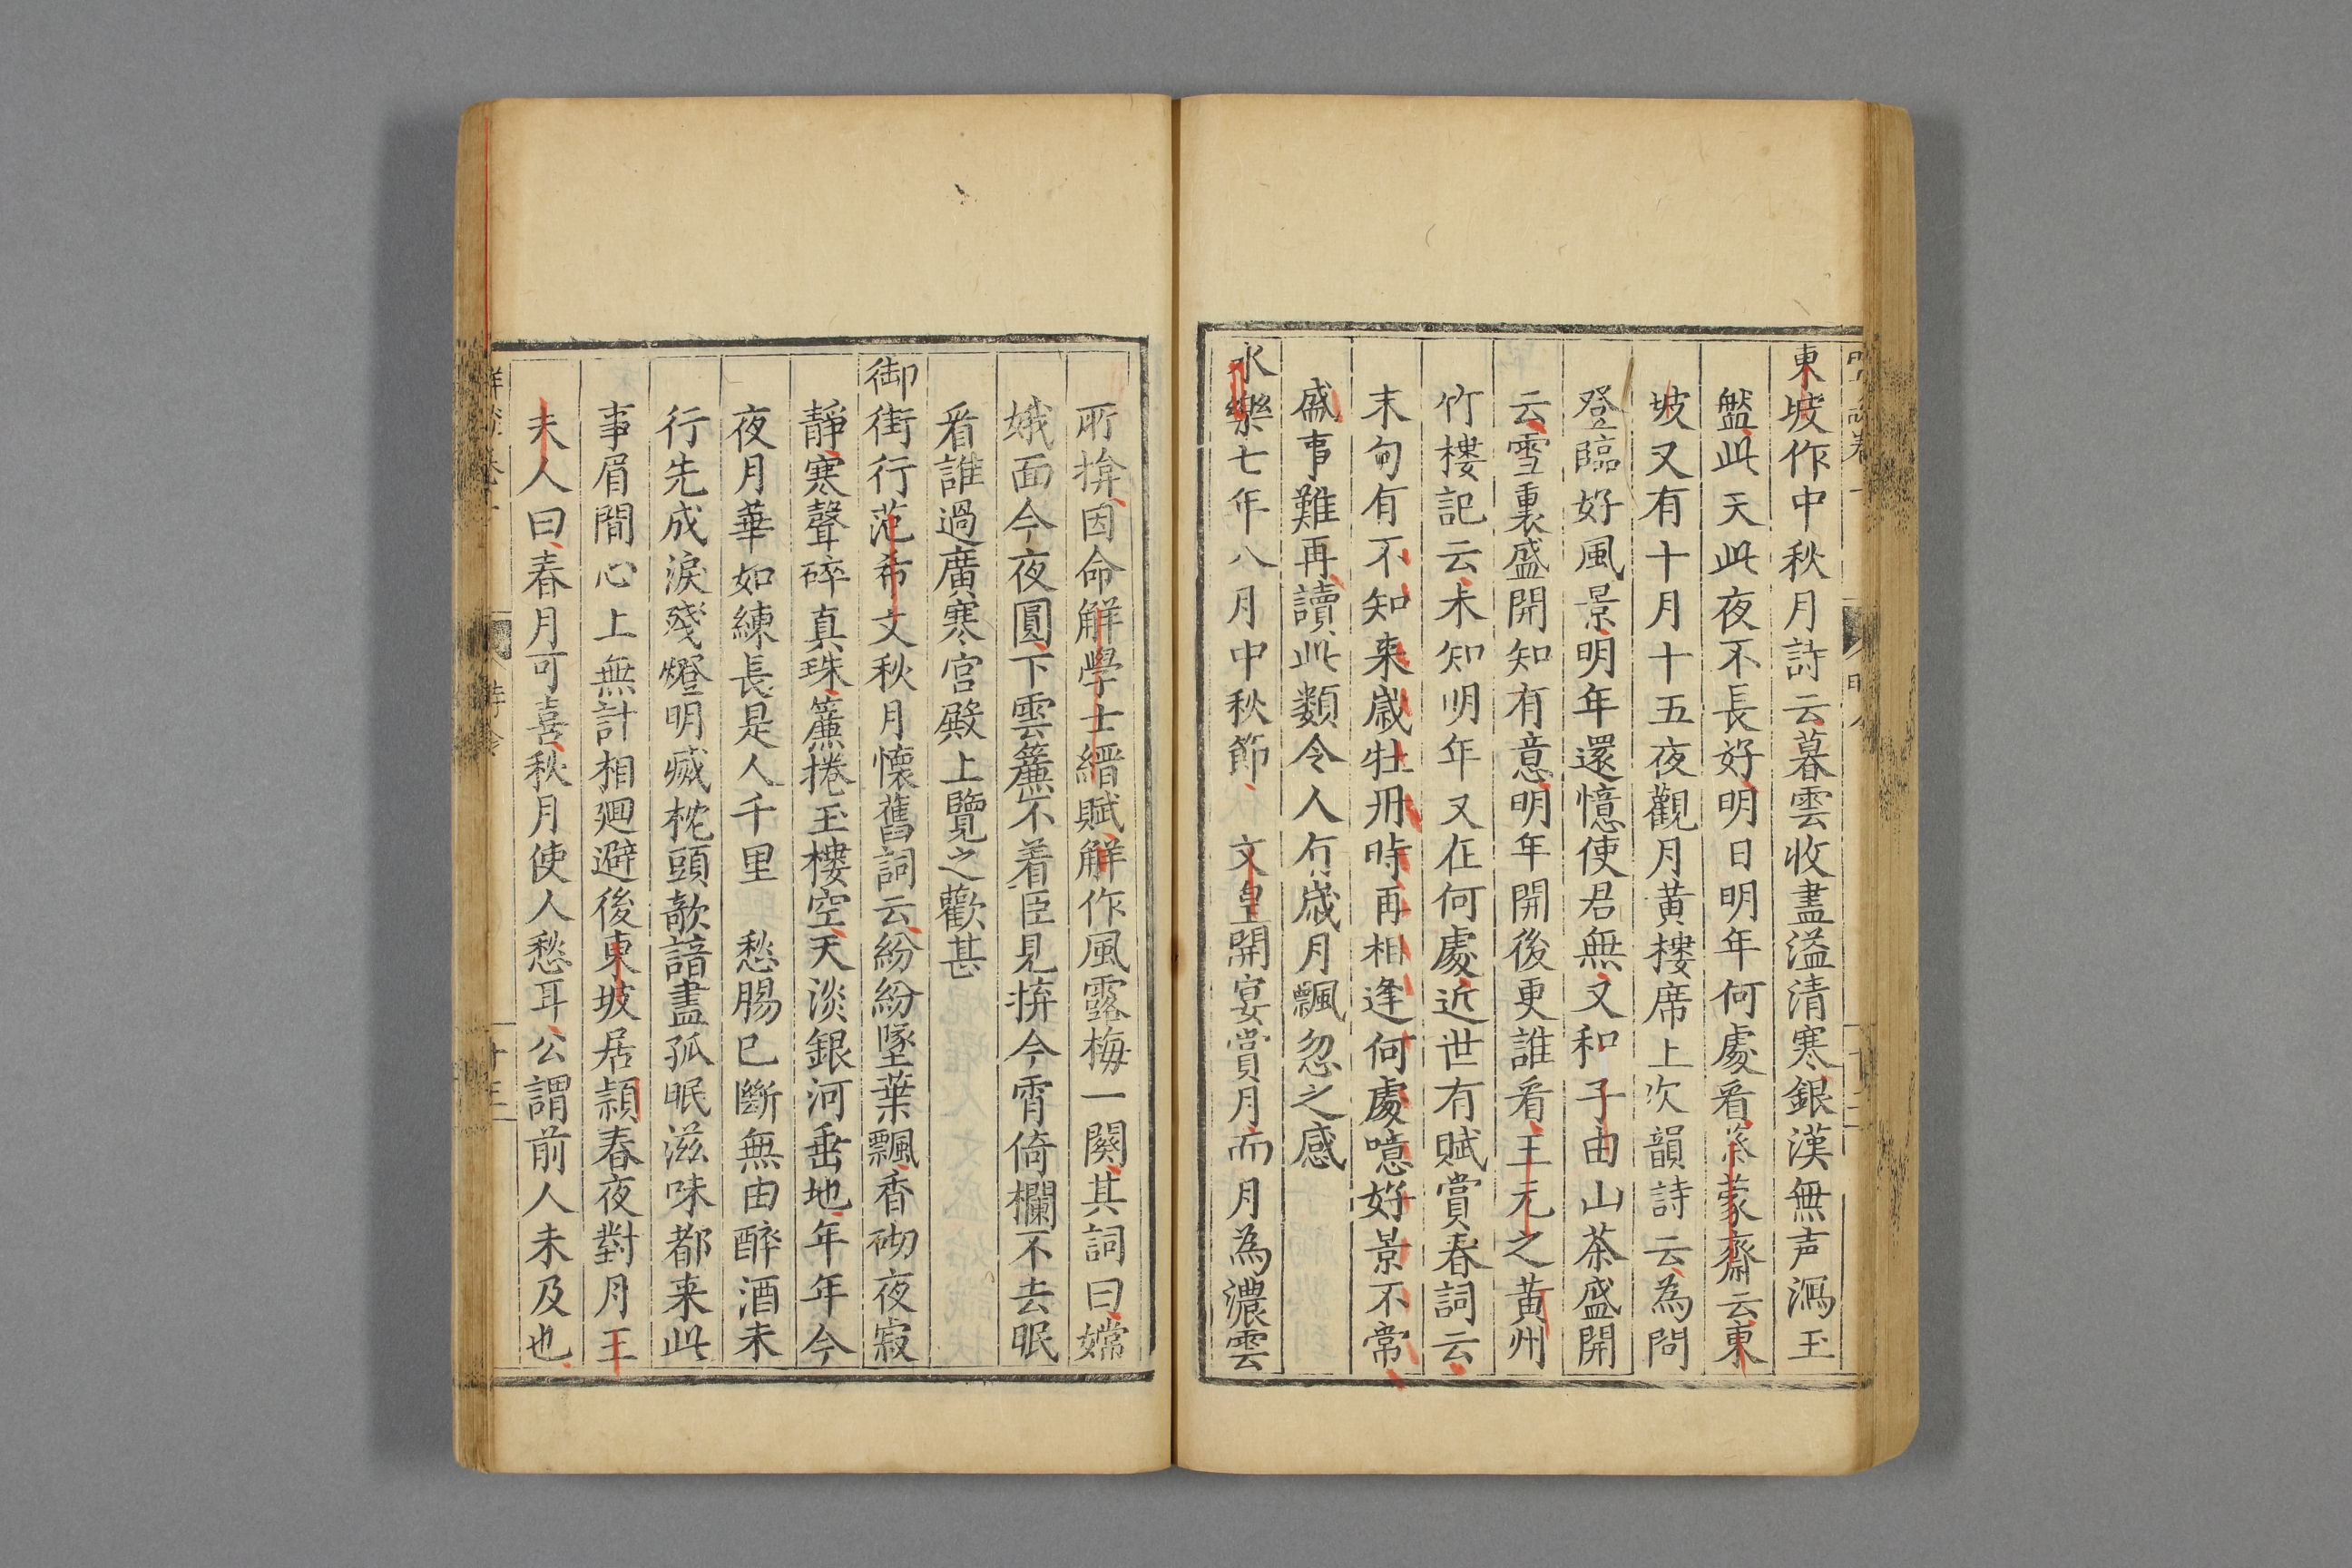 東坡作中秋月詩云暮雲收盡溢清寒銀漢無声瀉玉
盤此天此夜不長好明日明年何處看蔡蒙齋云東
坡又有十月十五夜觀月黃樓席上次韻詩云為問
登臨好風景明年還憶使君無又和子由山茶盛開
云雪裏盛開知有意明年開後更誰看王元之黃州
竹樓記云未知明年又在何處近世有賦賞春詞云
末句有不知来歲牡丹時再相逢何處噫好景不常
盛事難再讀此類令人有歲月飄忽之感
永樂七年八月中秋節文皇開宴賞月而月為濃雲
所揜因命解學士縉賦解作風露梅一闋其詞曰嫦
娥面今夜圓下雲簾不着臣見拚今宵倚欄不去眠
看誰過廣寒宮殿上覽之歡甚
御街行范希文秋月懷舊詞云紛紛墜葉飄香砌夜寂
靜寒聲碎真珠簾捲玉樓空天淡銀河垂地年年今
夜月華如練長是人千里愁腸已斷無由醉酒未
行先成淚殘燈明滅枕頭敧諳盡孤眠滋味都来此
事眉間心上無計相迴避後東坡居潁春夜對月王
夫人曰春月可喜秋月使人愁耳公謂前人未及也